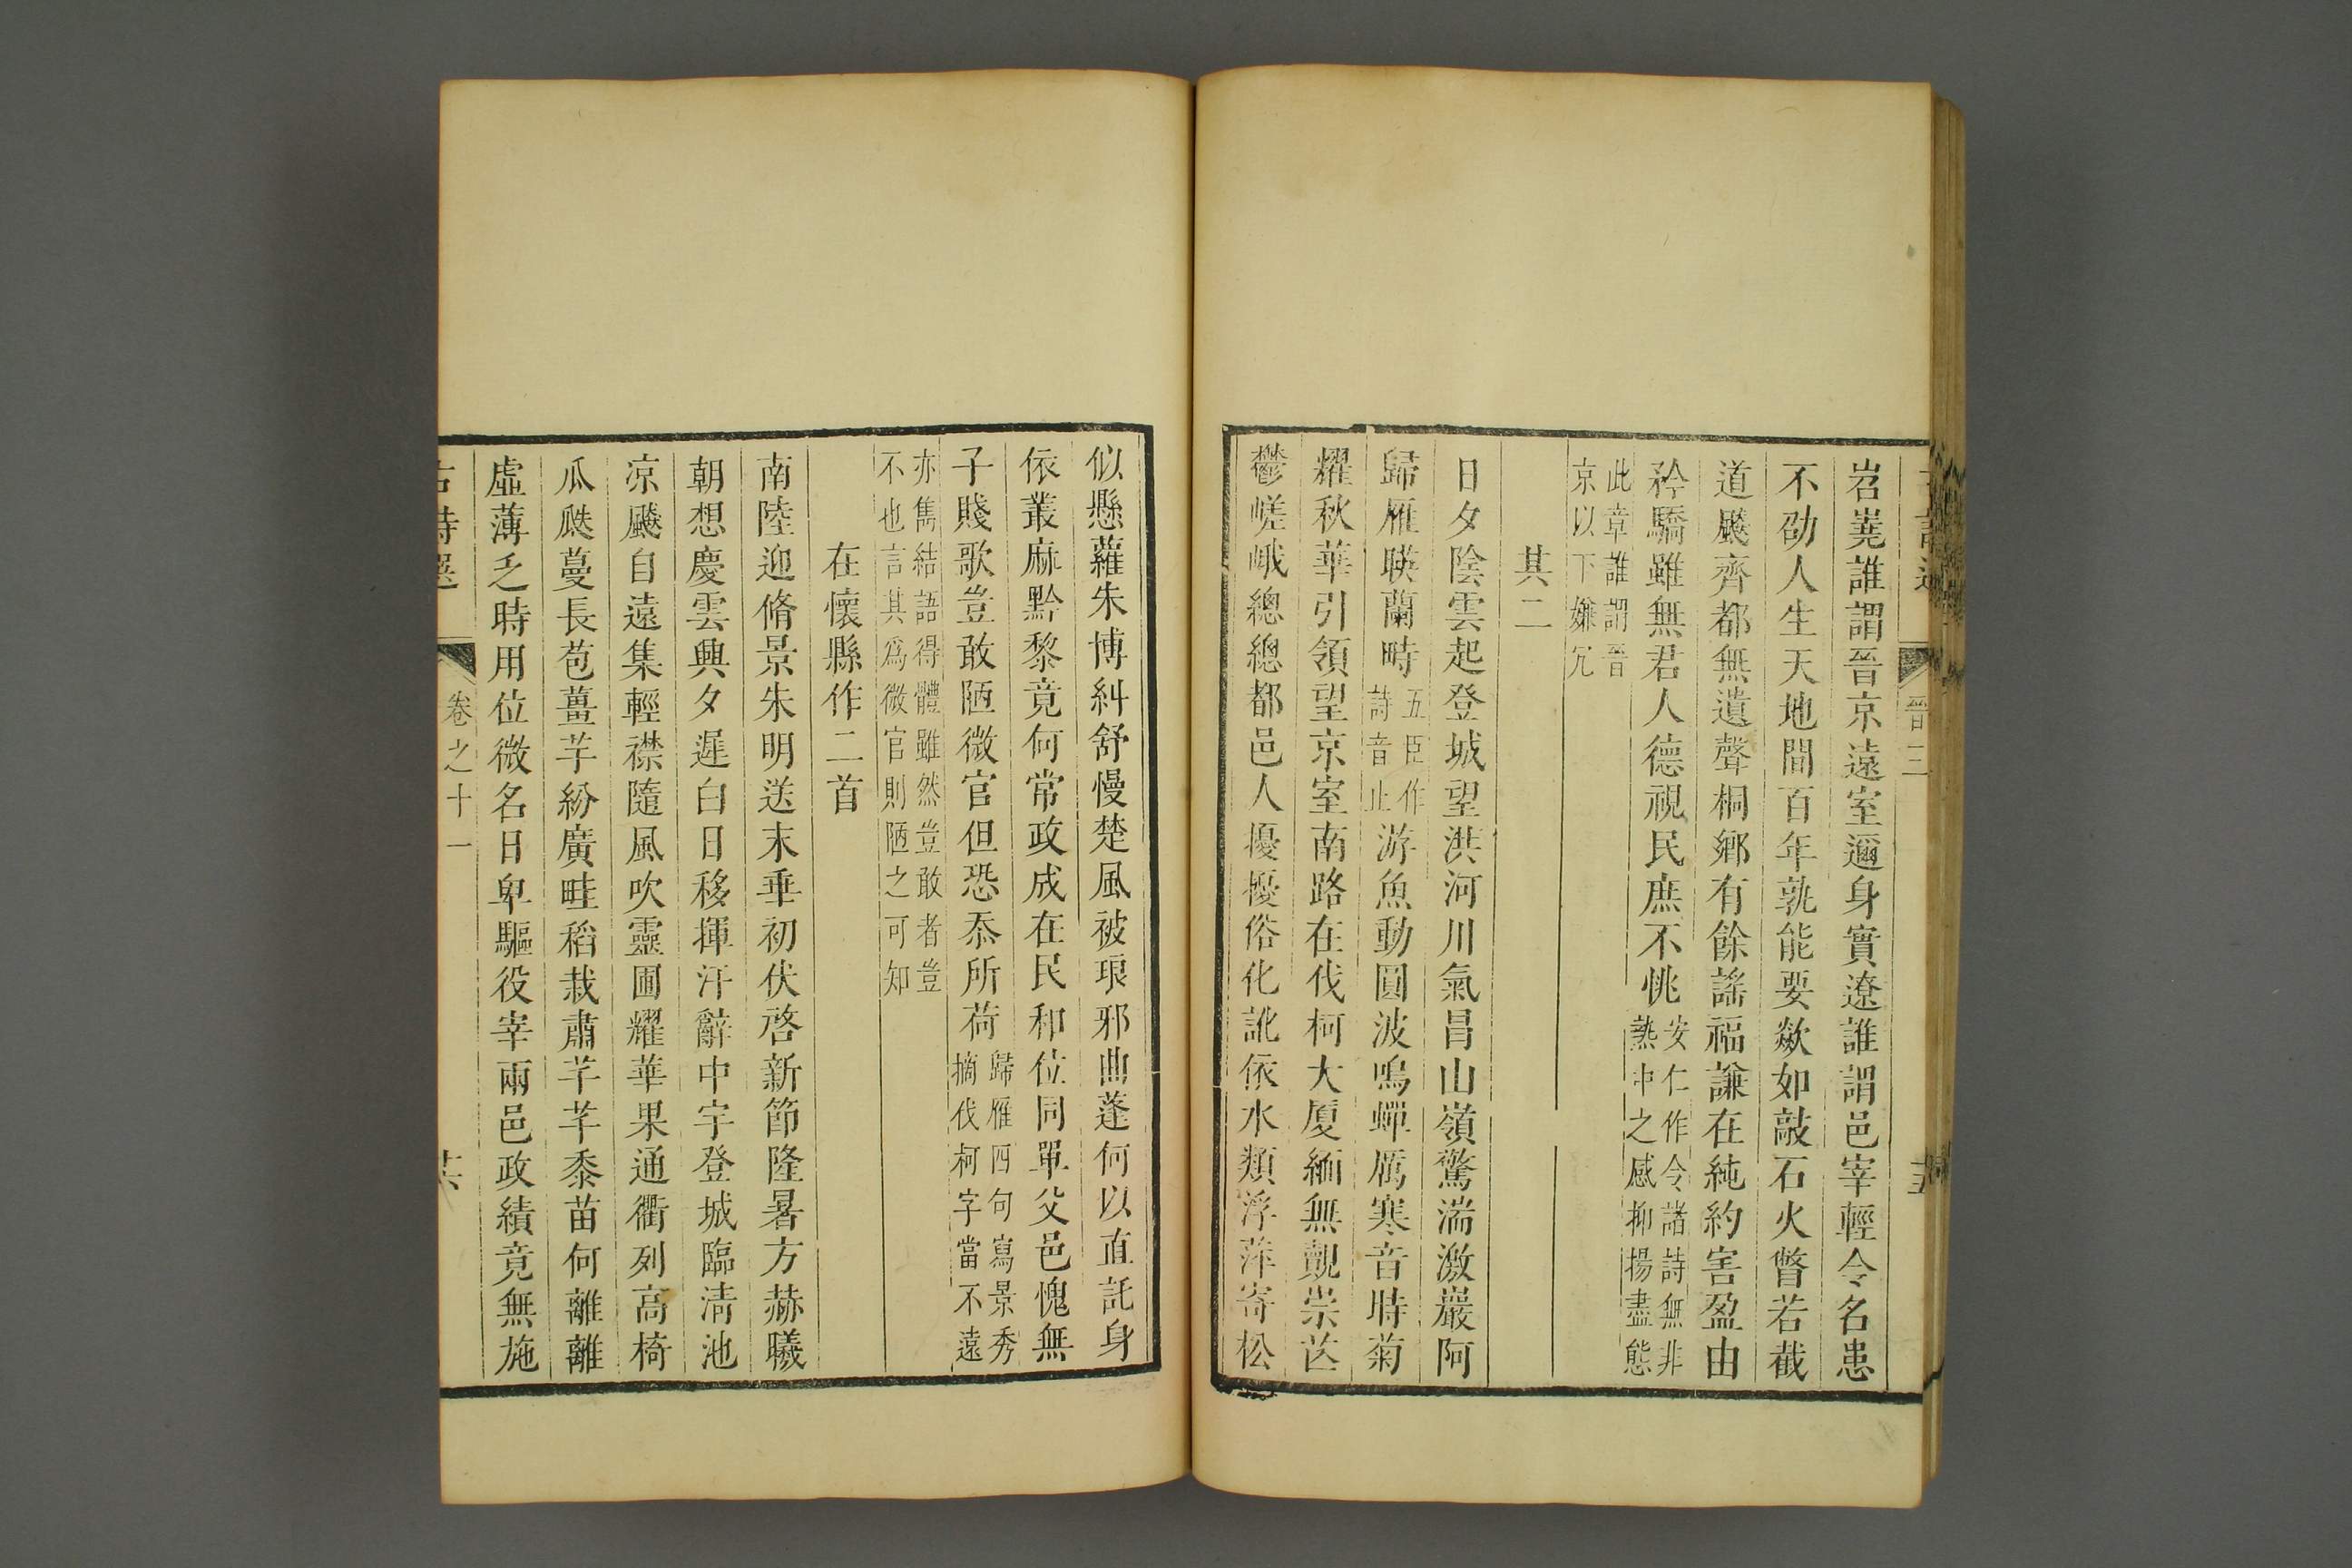 晉二
岧嶤誰謂晉京遠室邇身實遼誰謂邑宰輕令名患
不劭人生天地間百年孰能要歘如敲石火瞥若截
道飈齊都無遺聲桐鄉有餘謠福謙在純約害盈由
矜驕雖無君人德視民庶不恌安仁作令諸詩無非
熱中之感抑揚盡態
此章誰謂晉
京以下嫌冗
其二
日夕陰雲起登城望洪河川氣昌山嶺驚湍激巖阿
歸雁暎蘭畤五臣作
詩音止游魚動圓波鳴蟬厲寒音時菊
耀秋華引領望京室南路在伐柯大厦緬無覿崇芒
鬱嵯峨總總都邑人擾擾俗化訛依水類浮萍寄松
似懸蘿朱博糾舒慢楚風被琅邪曲蓬何以直託身
依叢麻黔黎竟何常政成在民和位同單父邑愧無
子賤歌豈敢陋微官但恐忝所荷歸雁四句寫景秀
摘伐柯字當不遠
亦雋結語得體雖然豈敢者豈
不也言其爲微官則陋之可知
在懷縣作二首
南陸迎脩景朱明送末垂初伏啓新節隆暑方赫曦
朝想慶雲興夕遲白日移揮汗辭中宇登城臨清池
凉飈自遠集輕襟隨風吹靈圃耀華果通衢列高椅
瓜瓞蔓長苞薑芋紛廣畦稻栽肅芊芊黍苗何離離
虛薄乏時用位微名日卑驅役宰兩邑政績竟無施
古詩選
卷之十一